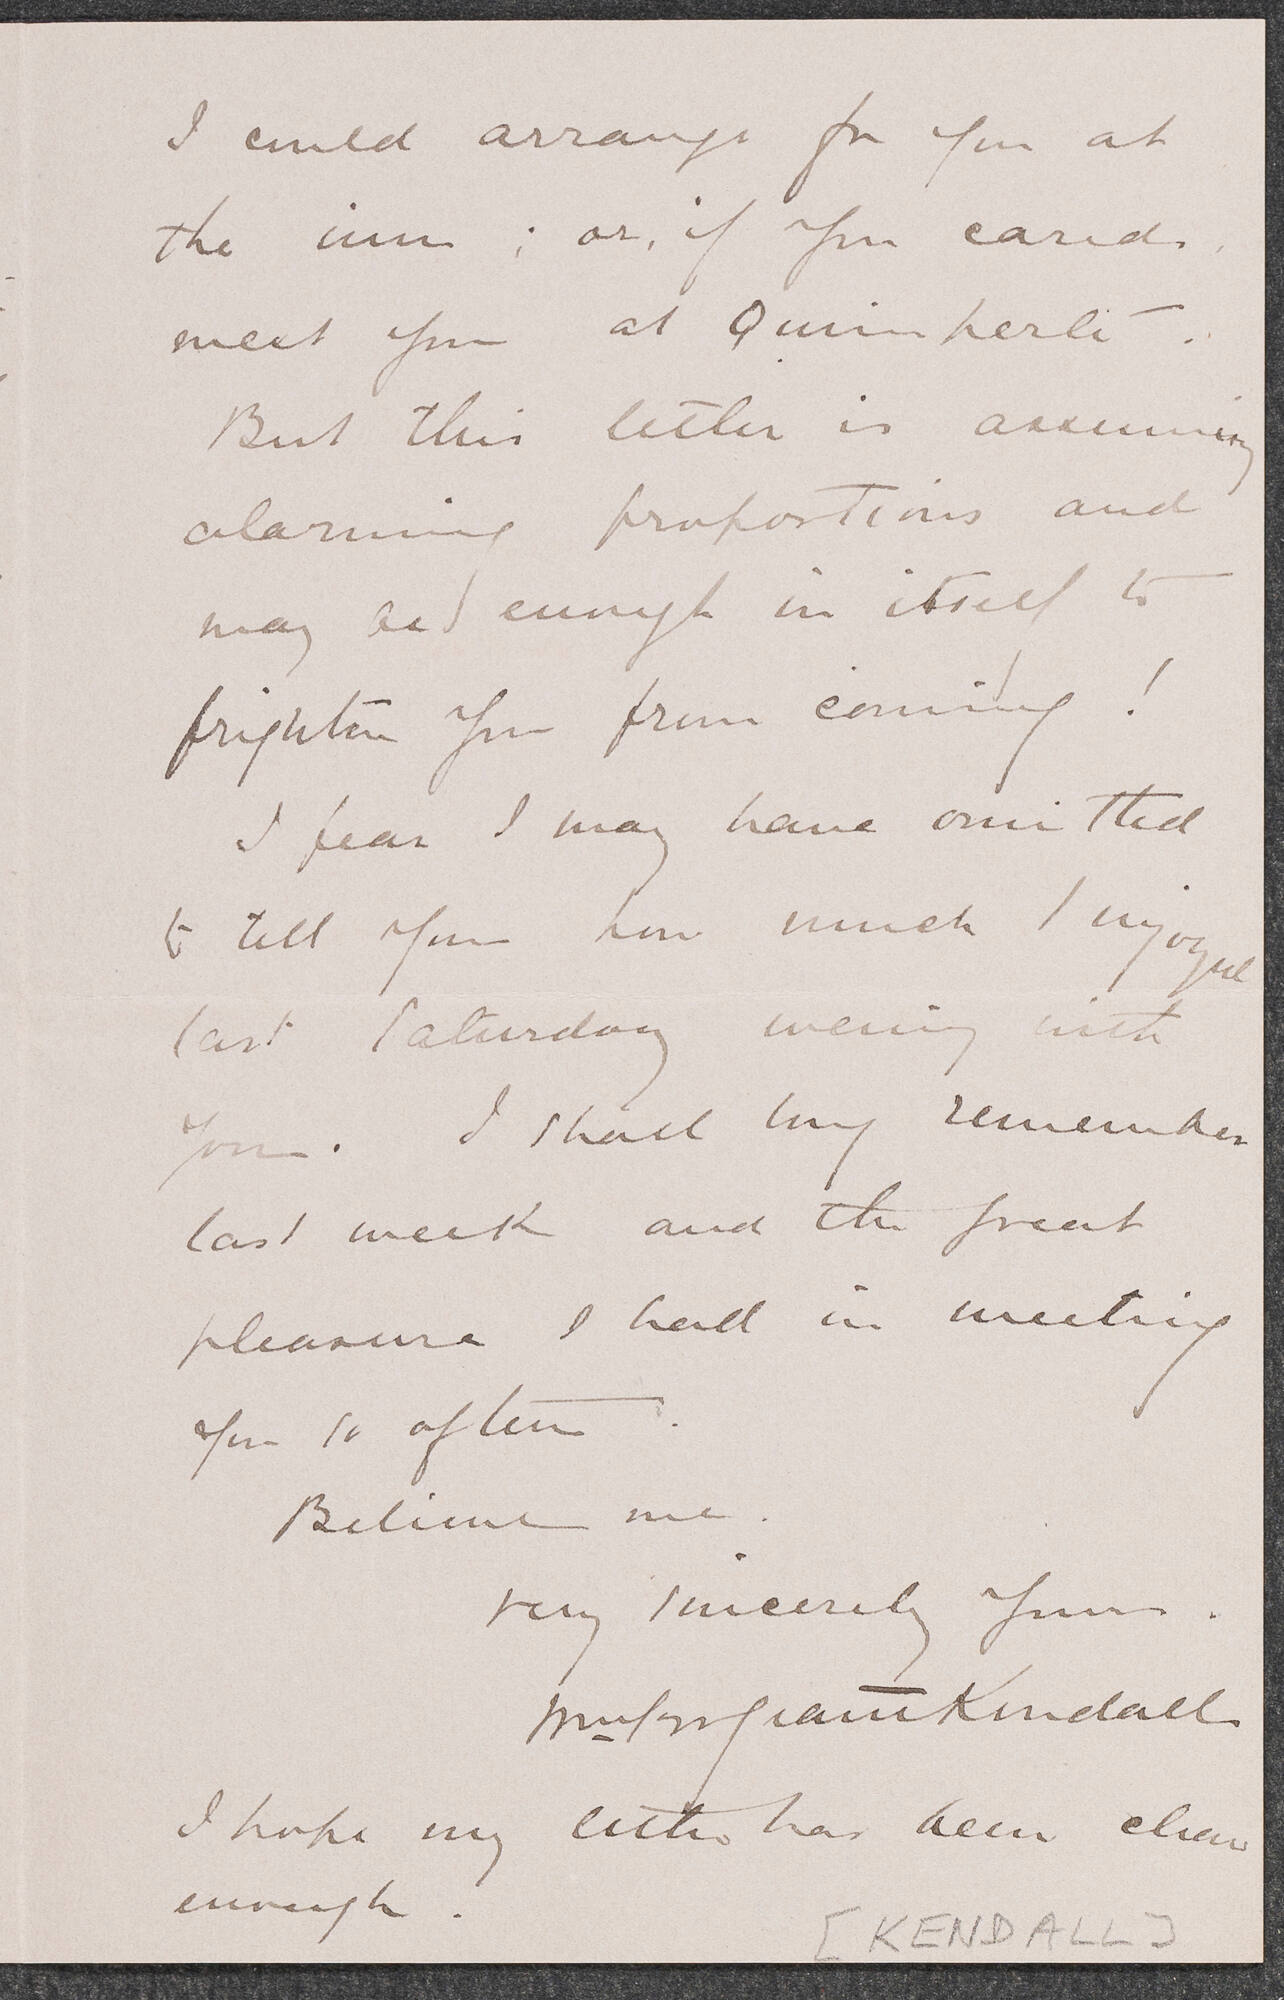 I could arrange for you at
the inn ; or, if you cared,
meet you at Quimperlé.
But this letter is assuming
alarming proportions and
may be enough in itself to
frighten you from coming !
I fear I may have omitted
to tell you how much I enjoyed
last Saturday evening with
you. I shall long remember
last week and the great
pleasure I had in meeting
you so often.
Believe me.
very sincerely yours.
Sergeant Kendall
I hope my letter has been clear
enough.
[KENDALL]